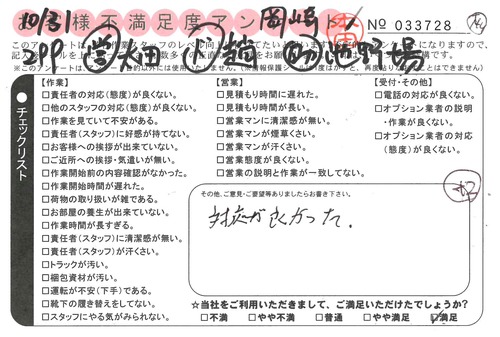 10/31 様不満足度アン 岡崎 No 033728
2PP 営 太田
チェックリスト
【作業】
□責任者の対応(態度)が良くない。
□他のスタッフの対応(態度)が良くない。
□作業を見ていて不安がある。
□責任者(スタッフ)に好感が持てない。
□お客様への挨拶が出来ていない。
□ご近所への挨拶・気遣いが無い。
□作業開始前の内容確認がなかった。
□作業開始時間が遅れた。
□荷物の取り扱いが雑である。
□お部屋の養生が出来ていない。
□作業時間が長すぎる。
□責任者(スタッフ)に清潔感が無い。
□責任者(スタッフ)が汗くさい。
□トラックが汚い。
□梱包資材が汚い。
□運転が不安(下手)である。
□靴下の履き替えをしてない。
□スタッフにやる気がみられない。
【営業】
□見積もり時間に遅れた。
□見積もり時間が長い。
□営業マンに清潔感が無い。
□営業マンが煙草くさい。
□営業マンが汗くさい。
□営業態度が良くない。
□営業の説明と作業が一致してない。
【受付・その他】
□電話の対応が良くない。
□オプション業者の説明
・作業が良くない。
□オプション業者の対応
(態度)が良くない。
その他、ご意見・ご要望等ありましたらお書き下さい。
対応が良くかった。
☆当社をご利用いただきまして、ご満足いただけたでしょうか?
□不満 □やや不満 □普通 □やや満足 ☑満足